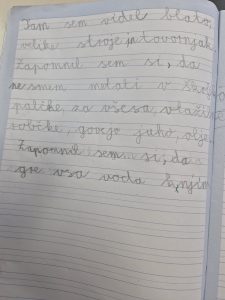 Tam sem videl blato,
velike stroje in tovornjak.
Zapomnil sem si, da
ne smem metati v školjko
palčke za ušesa, vlažilne
robčke, govejo juho, olje.
Zapomnil sem si, da
gre vsa voda k njim.